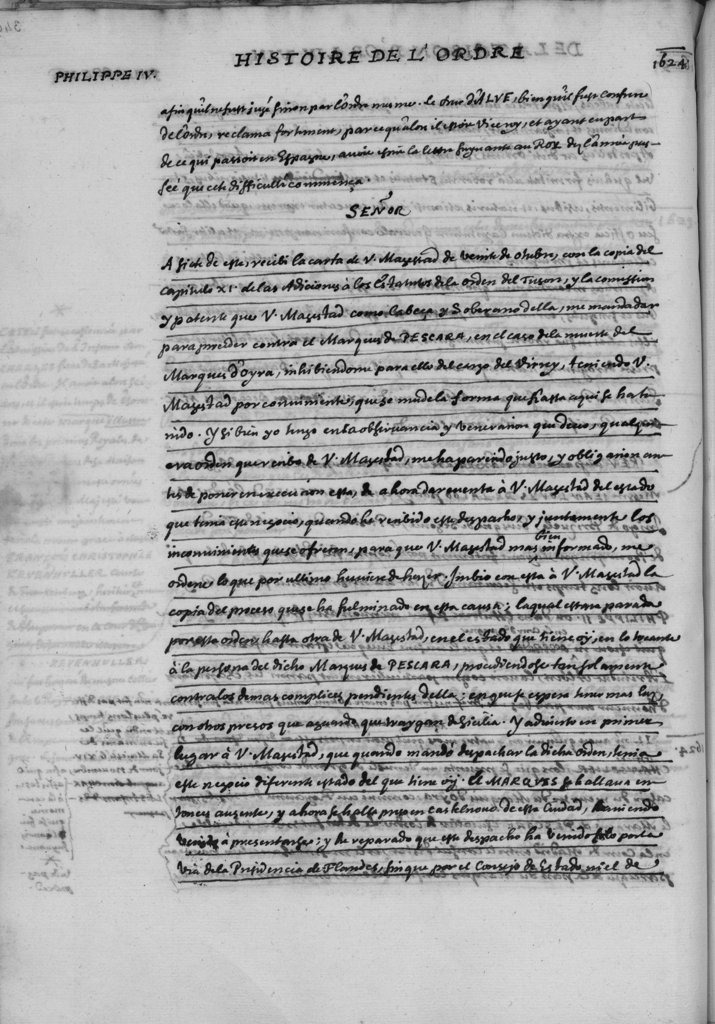 HISTOIRE DE L'ORDRE
1624
PHILIPPE IV.
afin qu'il ne fust jugé sinon par l'Ordre mesme. Le Duc d'ALVE, bien qu'il fust Confrere
de l'Ordre, reclama fortement, parce qu'alors il estoit Viceroy, et ayant eu part
de ce qui passoit en Espagne, avoit escrit la lettre suyvante au Roy de l'année pas-
sée que cete difficulté commença
SEÑOR
A siete de este, recibi la carta de V. Magestad de veinte de otubre, con la copia del
capitulo XI. de las Adiciones à los Estatutos de la Orden del Tuson, y la comission
y patente que V. Magestad como Cabeça y Soberano della, me manda dar
para proceder contra el Marques de PESCARA, en el caso de la muerte del
Marques d'Oyra, inhibiendome para ello del cargo del Virrey, teniendo V.
Magestad por conveniente, que se mude la forma que hasta aqui se ha te-
nido. Y si bien yo tengo en la observancia y veneracion que devo, qualqui-
era orden que recibo de V. Magestad, me ha parecido justo, y obligacion an-
tes de poner en execucion esta, de ahora dar cuenta à V. Magestad del estado
que tenia este negocio, quando he recibido este despacho, y juntamente los
inconvenientes que se ofrecen, para que V. Magestad mas bien informado, me
ordene lo que por ultimo huviere de hazer. Imbio con esta à V. Magestad la
copia del proceso que se ha fulminado en esta causa; la qual estara parada
por esta orden hasta otra de V. Magestad, en el estado que tiene oy, en lo tocante
à la persona del dicho Marques de PESCARA, procediendose tan solamente
contra los demas complices pendientes della; en que se espera tener mas luz,
con otros presos que aguardo que traygan de Sicilia. Y advierto en primer
lugar à V. Magestad, que quando mandó despachar la dicha orden, tenia
este negocio diferente estado del que tiene oy. El MARQUES se hallava en-
tonces ausente, y ahora se halla preso en castelnovo de esta Ciudad, haviendo
venido à presentarse; y he reparado que este despacho ha venido solo por la
via de la Presidencia de Flandes, sin que por el Consejo de Estado ni el de